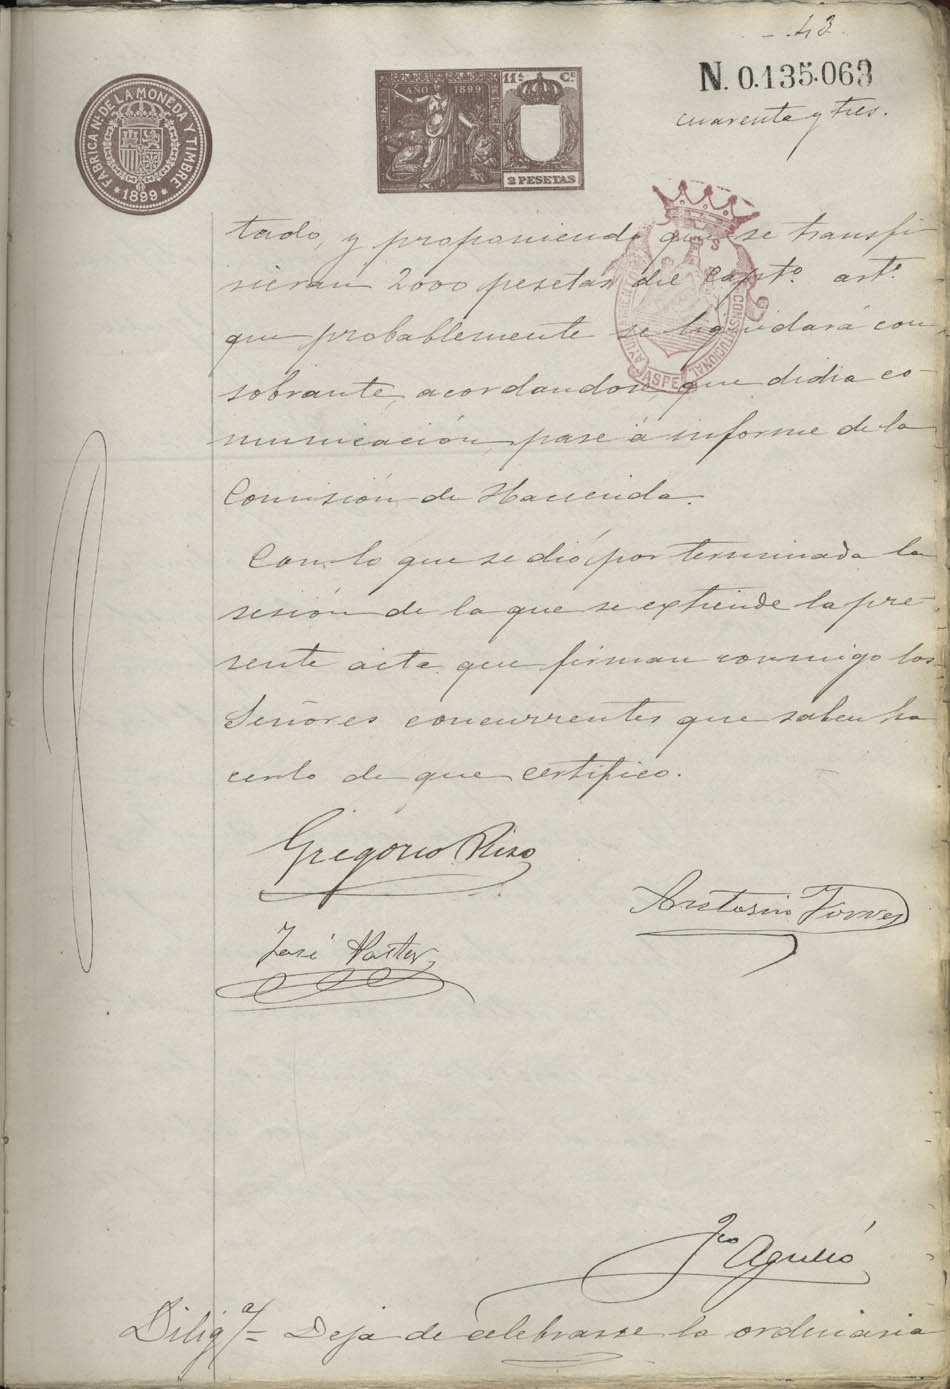 43.
FABRICA Nl. DE LA MONEDA Y TIMBRE
* 1899 *
AÑO 1899
11ª Cº
2 PESETAS
N. 0.135.063
cuarenta y tres.
AYUNTAMIENTO CONSTITUCIONAL
ASPE
tado, y proponiendo que se transfi-
rieran 2000 pesetas del Captº. artº.
que probablemente se liquidará con
sobrante, acordandose que didia co-
municación, pase á informe de la
Comisión de Hacienda.
Con lo que se dió por terminada la
sesión de la que se extiende la pre-
sente acta que firman conmigo los
Señores concurrentes que saben ha
cerlo de que certifico.
Gregorio Rizo
Antonio Torres
José Pastor
Fco Agulló
Diligª/= Deja de celebrarse la ordinaria